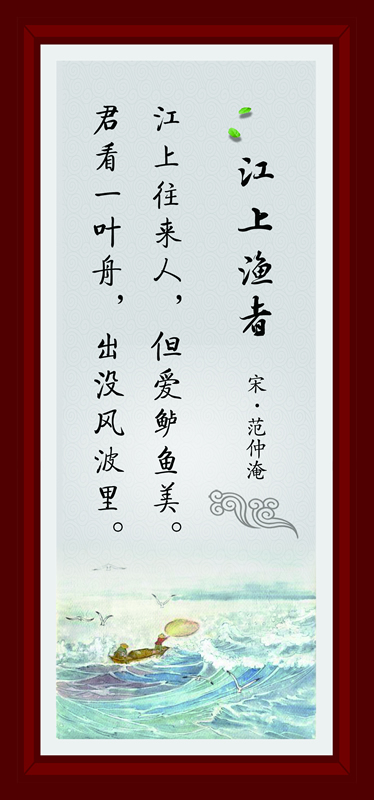 江上渔者
宋·范仲淹
江上往来人，但爱鲈鱼美。
君看一叶舟，出没风波里。